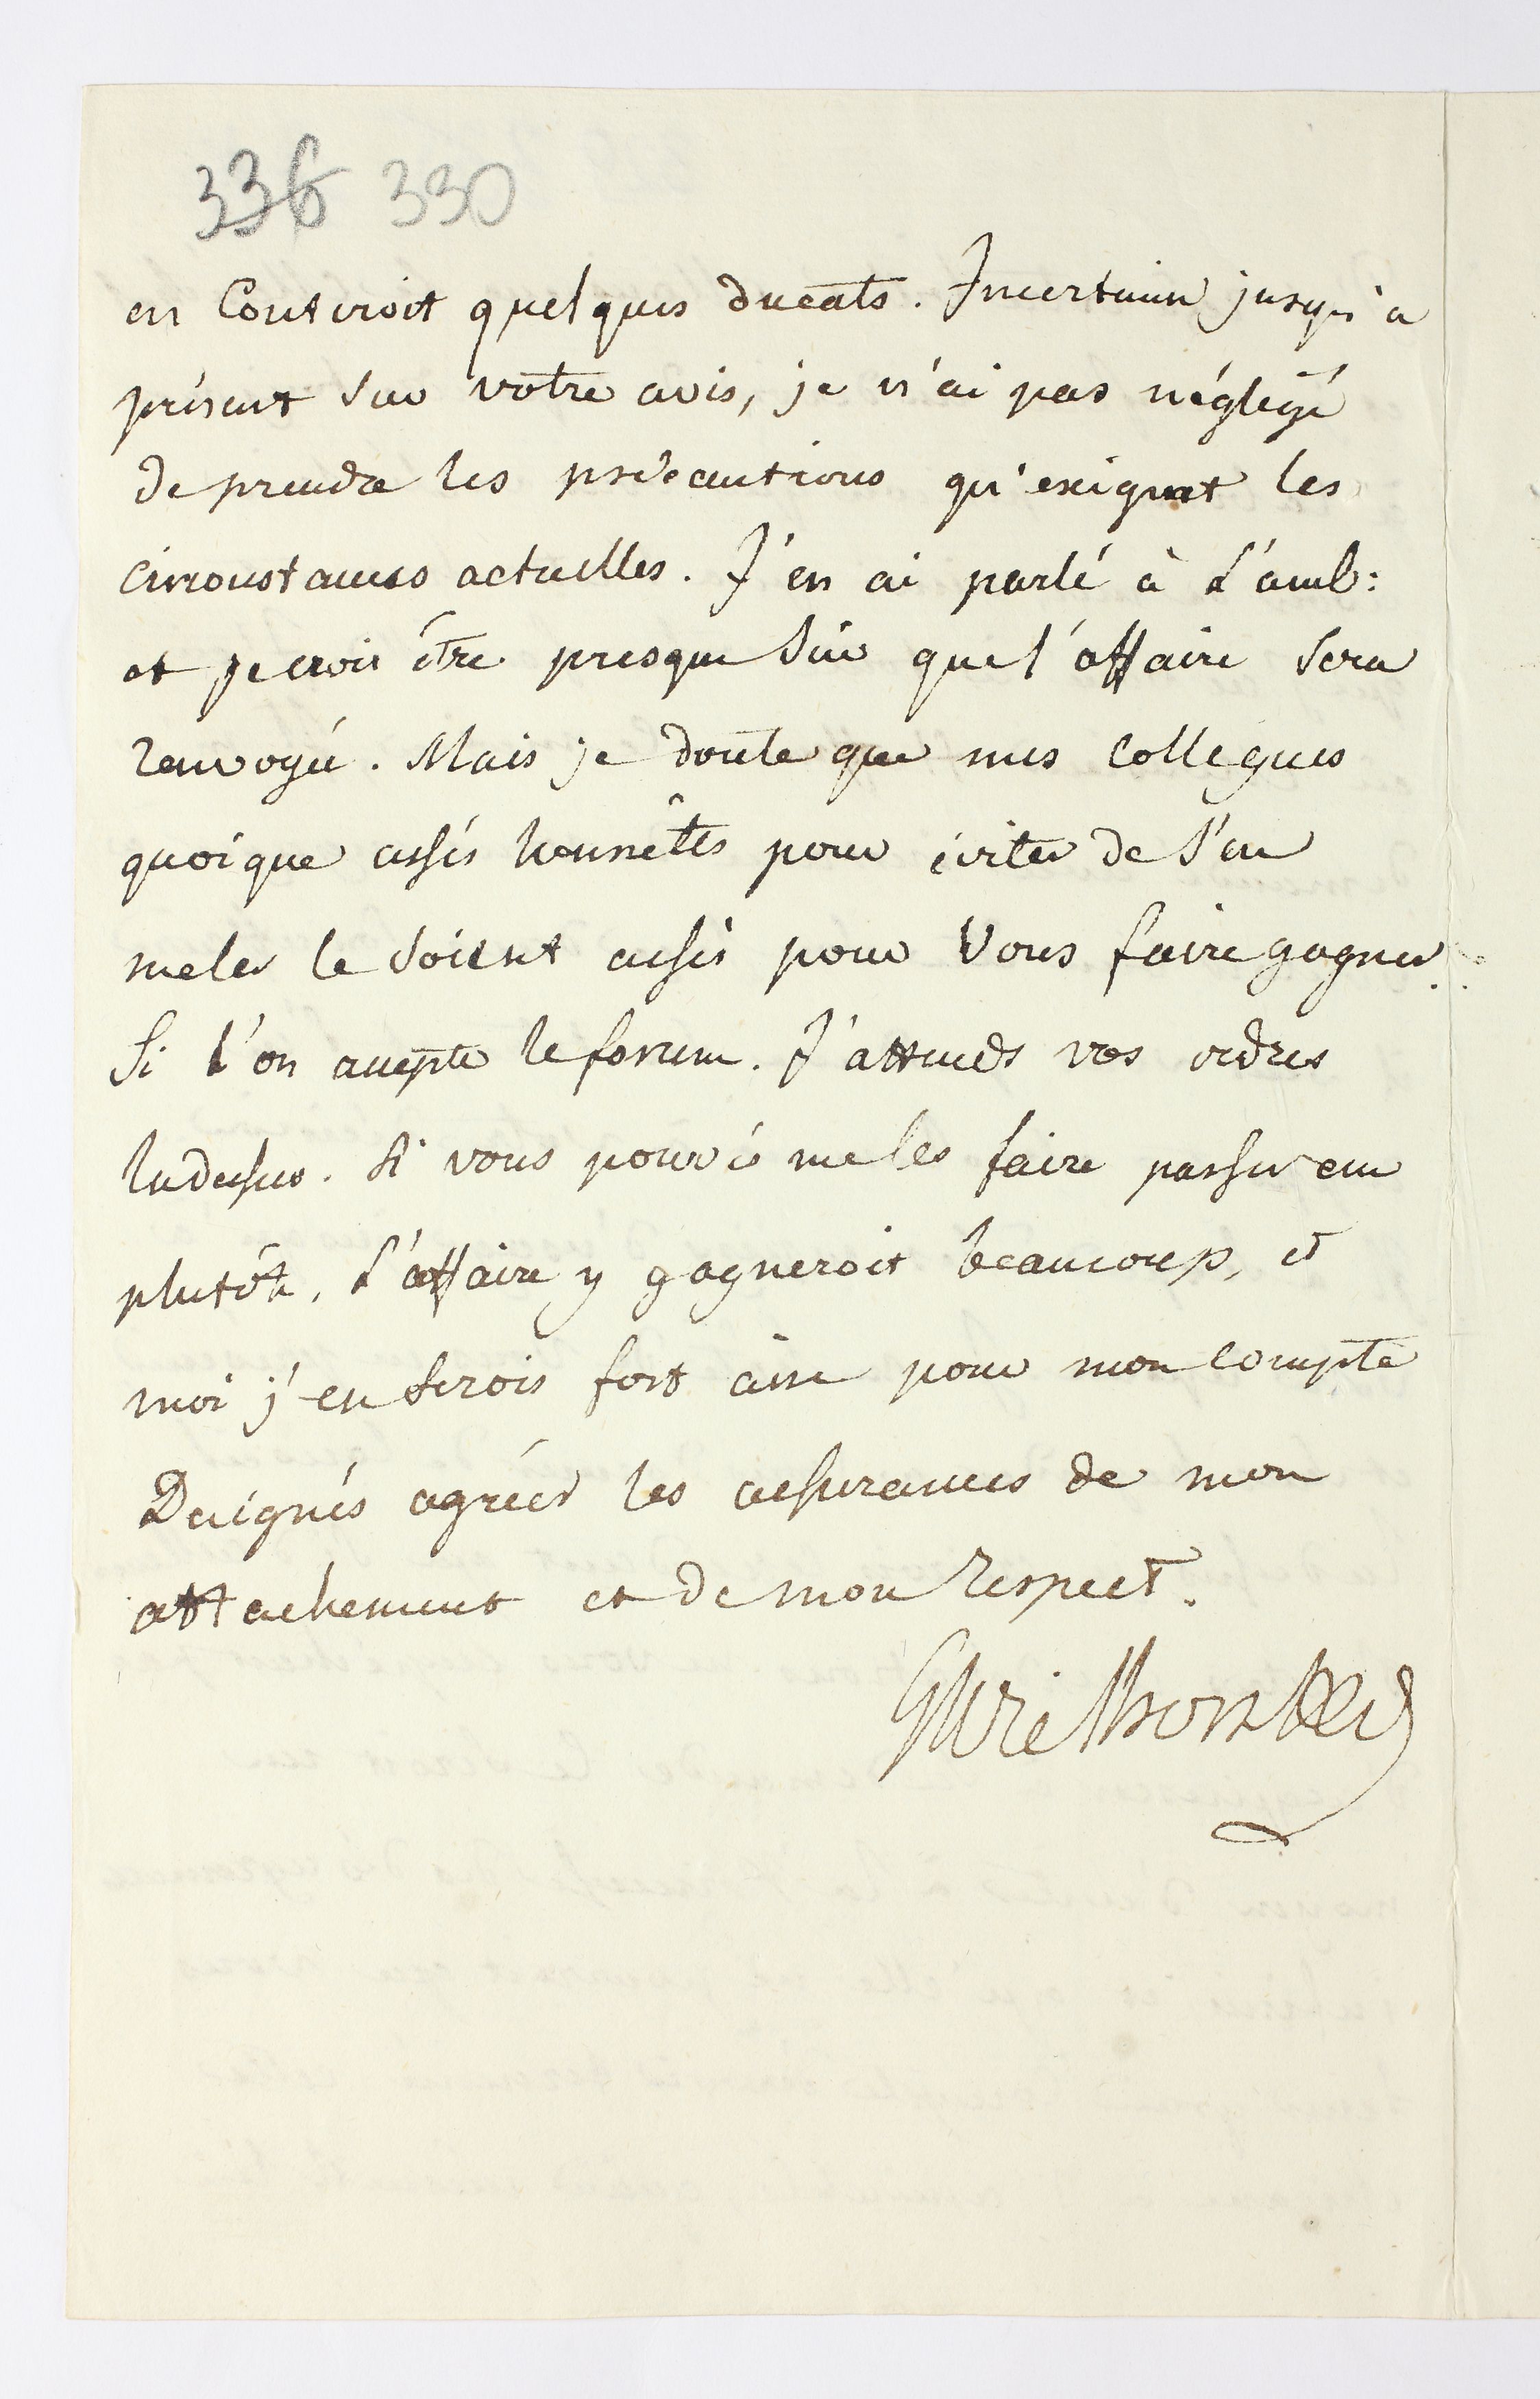 336 330
en Couteroit quelques ducats. Incertain jusqu'a
présent sur votre avis, je n'ai pas négligé
de prendre les précautions qu'exigent les
circonstances actuelles. J'en ai parlé à L'amb:
et je crois être presque Sur que l'affaire Sera
renvoyée. Mais je doute que mes Collegues
quoique assés honnêtes pour éviter de S'en
meler le Soient assés pour Vous faire gagner
Si l'on accepte le forum. J'attends vos ordres
ladessus. Si vous pouviés me les faire passer au
plutôt, L'affaire y gagneroit beaucoup, et
moi j'en Serois fort aise pour mon compte
Daignés agréer les assurances de mon
attachement et de mon respect.